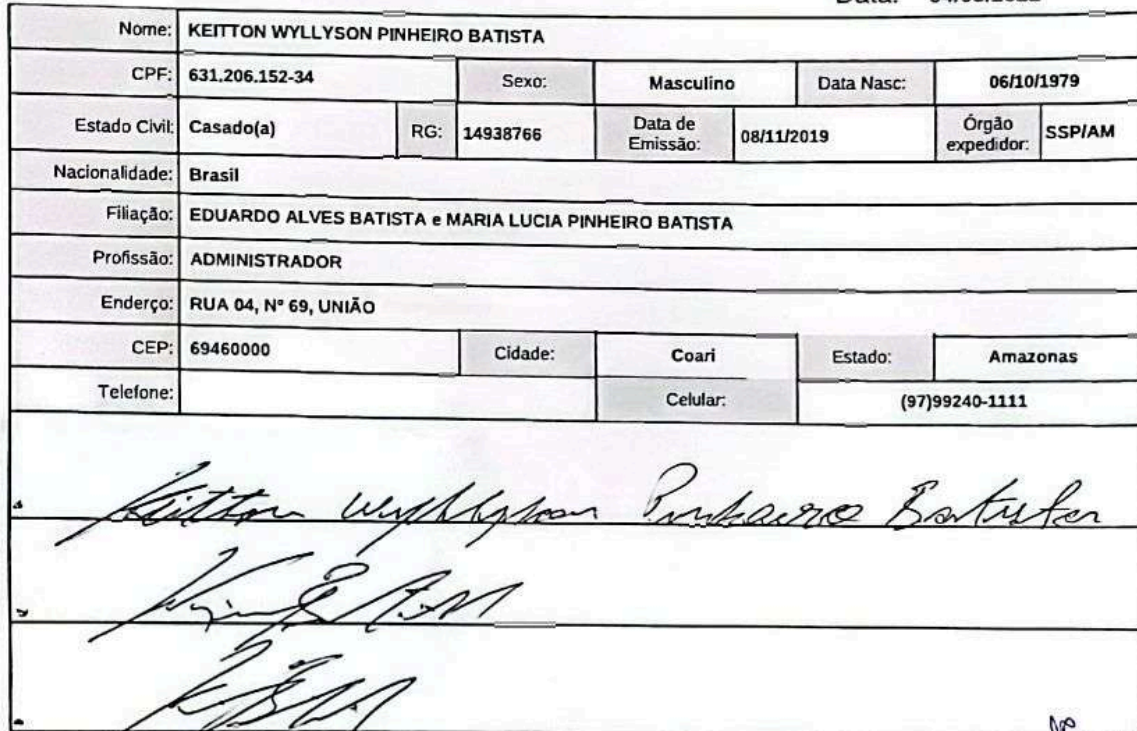 Data:
Nome: KEITTON WYLLYSON PINHEIRO BATISTA
CPF: 631.206.152-34 Sexo: Masculino Data Nasc: 06/10/1979
Estado Civil: Casado(a) RG: 14938766 Data de Emissão: 08/11/2019 Órgão expedidor: SSP/AM
Nacionalidade: Brasil
Filiação: EDUARDO ALVES BATISTA e MARIA LUCIA PINHEIRO BATISTA
Profissão: ADMINISTRADOR
Enderço: RUA 04, Nº 69, UNIÃO
CEP: 69460000 Cidade: Coari Estado: Amazonas
Telefone: Celular: (97)99240-1111
Keitton Wyllyson Pinheiro Batista